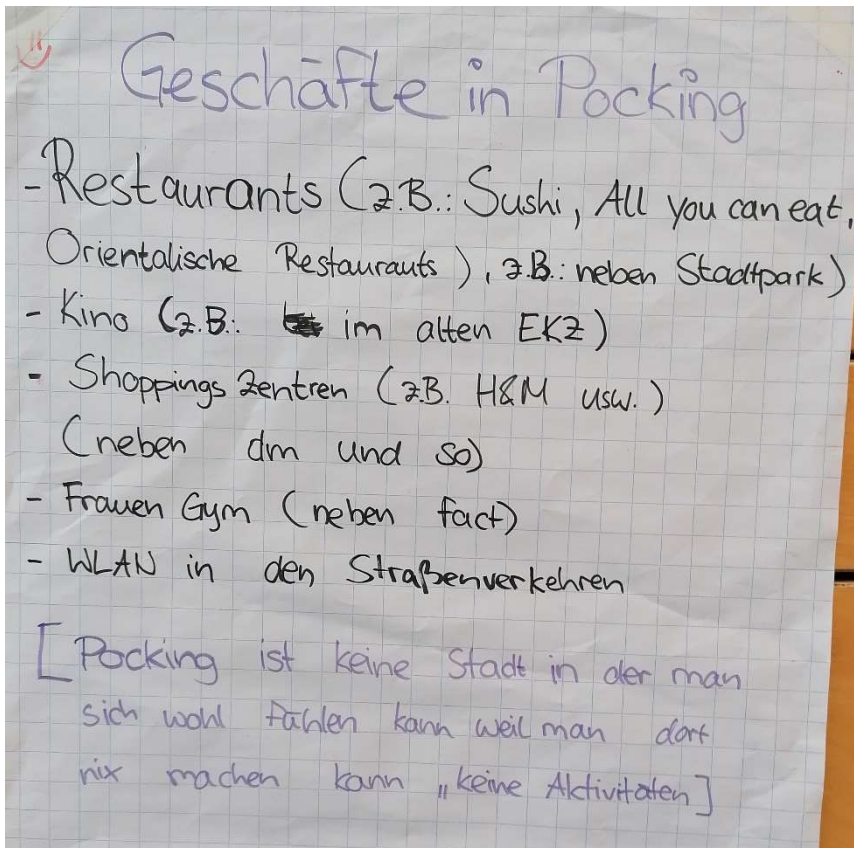 Geschäfte in Pocking
- Restaurants (z.B.: Sushi, All you can eat,
Orientalische Restaurauts), z.B.: neben Stadtpark)
- Kino (z.B.: im alten EKZ)
- Shoppings Zentren (z.B. H&M usw.)
(neben dm und so)
- Frauen Gym (neben fact)
- WLAN in den Straßenverkehren
[Pocking ist keine Stadt in der man
sich wohl fühlen kann weil man dort
nix machen kann „keine Aktivitäten]